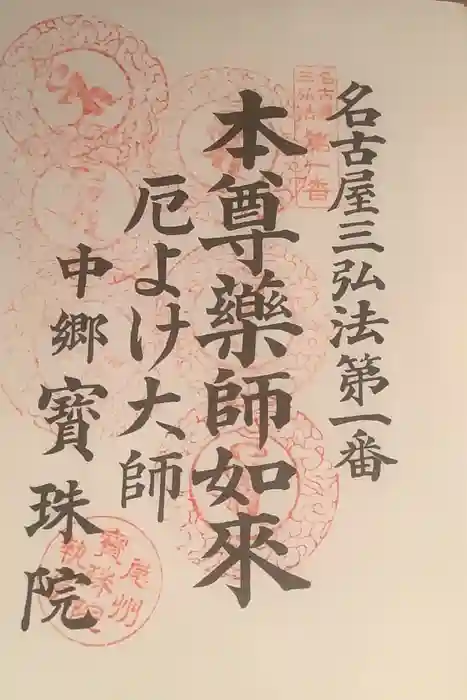 名古屋三弘法第一番
名古屋
三弘法
第一番
本尊藥師如來
厄よけ大師
中郷寳珠院
尾州
寳珠
院